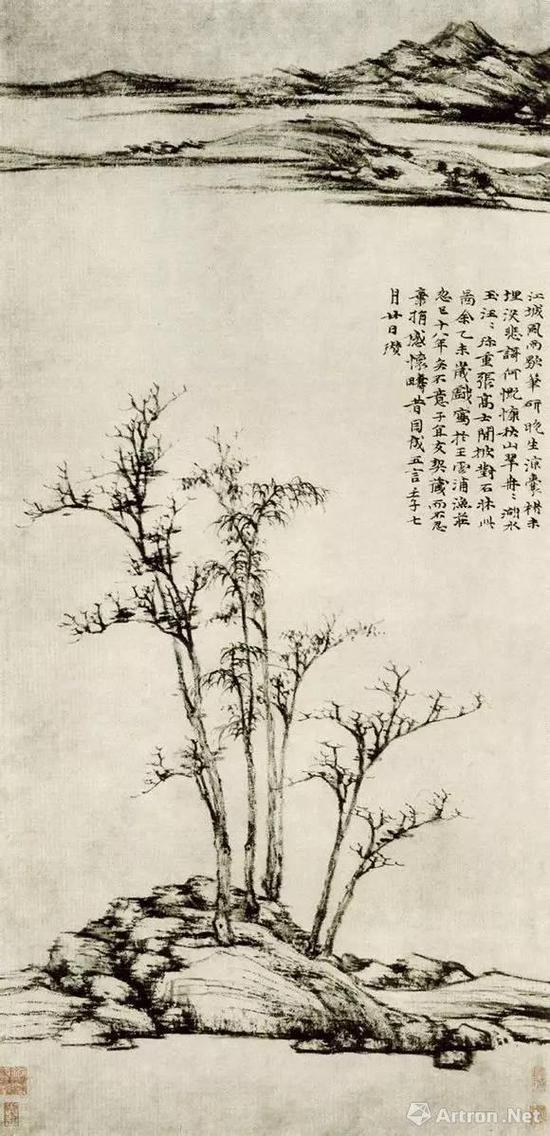 江城風雨歇筆研晚生涼囊楮未
埋沒悲謌何慨慷秋山翠冉〻湖水
玉汪〻珍重張高士閒披對石牀此
圖余乙未歲戲寫於王雲浦漁莊
忽已十八年矣不意子宜友契藏而不忍
棄捐感懷疇昔因成五言壬子七
月廿日瓚
Artron.Net